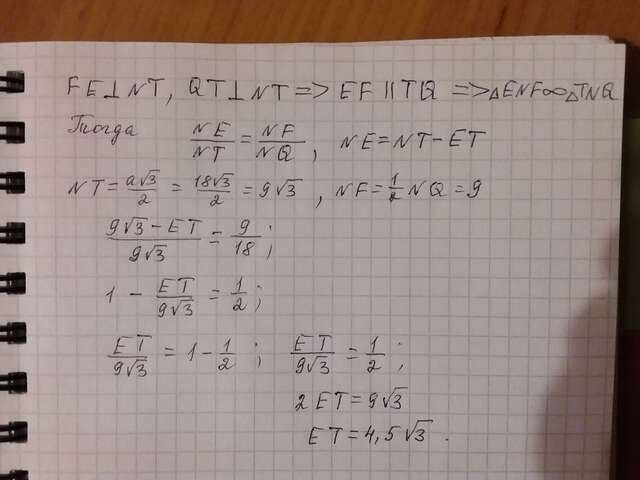 FE⊥NT, QT⊥NT=>EF||TQ=>△ENF∞△TNQ
Тогда NE/NT=NF/NQ, NE=NT-ET
NT=a√3/2=18√3/2=9√3, NF=1/2NQ=9
9√3-ET/9√3=9/18;
1-ET/9√3=1/2;
ET/9√3=1-1/2; ET/9√3=1/2;
2ET=9√3
ET=4,5√3.